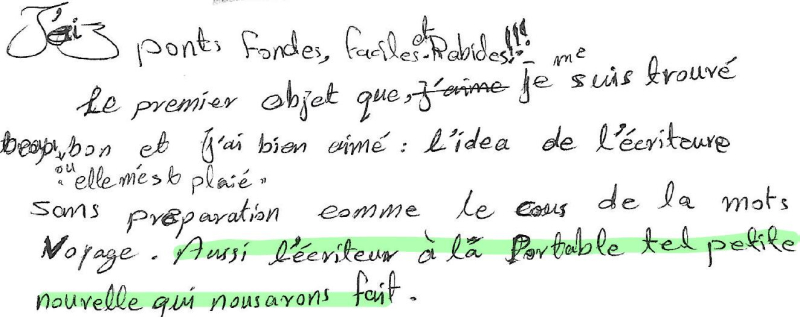 J'ai 3 ponts Fondes, Faciles et Rabides!!!
Le premier objet que, j'aime je me suis trouvé
beap, bon et j'ai bien aimé : l'idea de l'écriteure
ou "elle m'est plaié"
sans preparation comme le cous de la mots
Voyage. Aussi l'écriteur à la Portable tel petite
nouvelle qui nousavons fait.